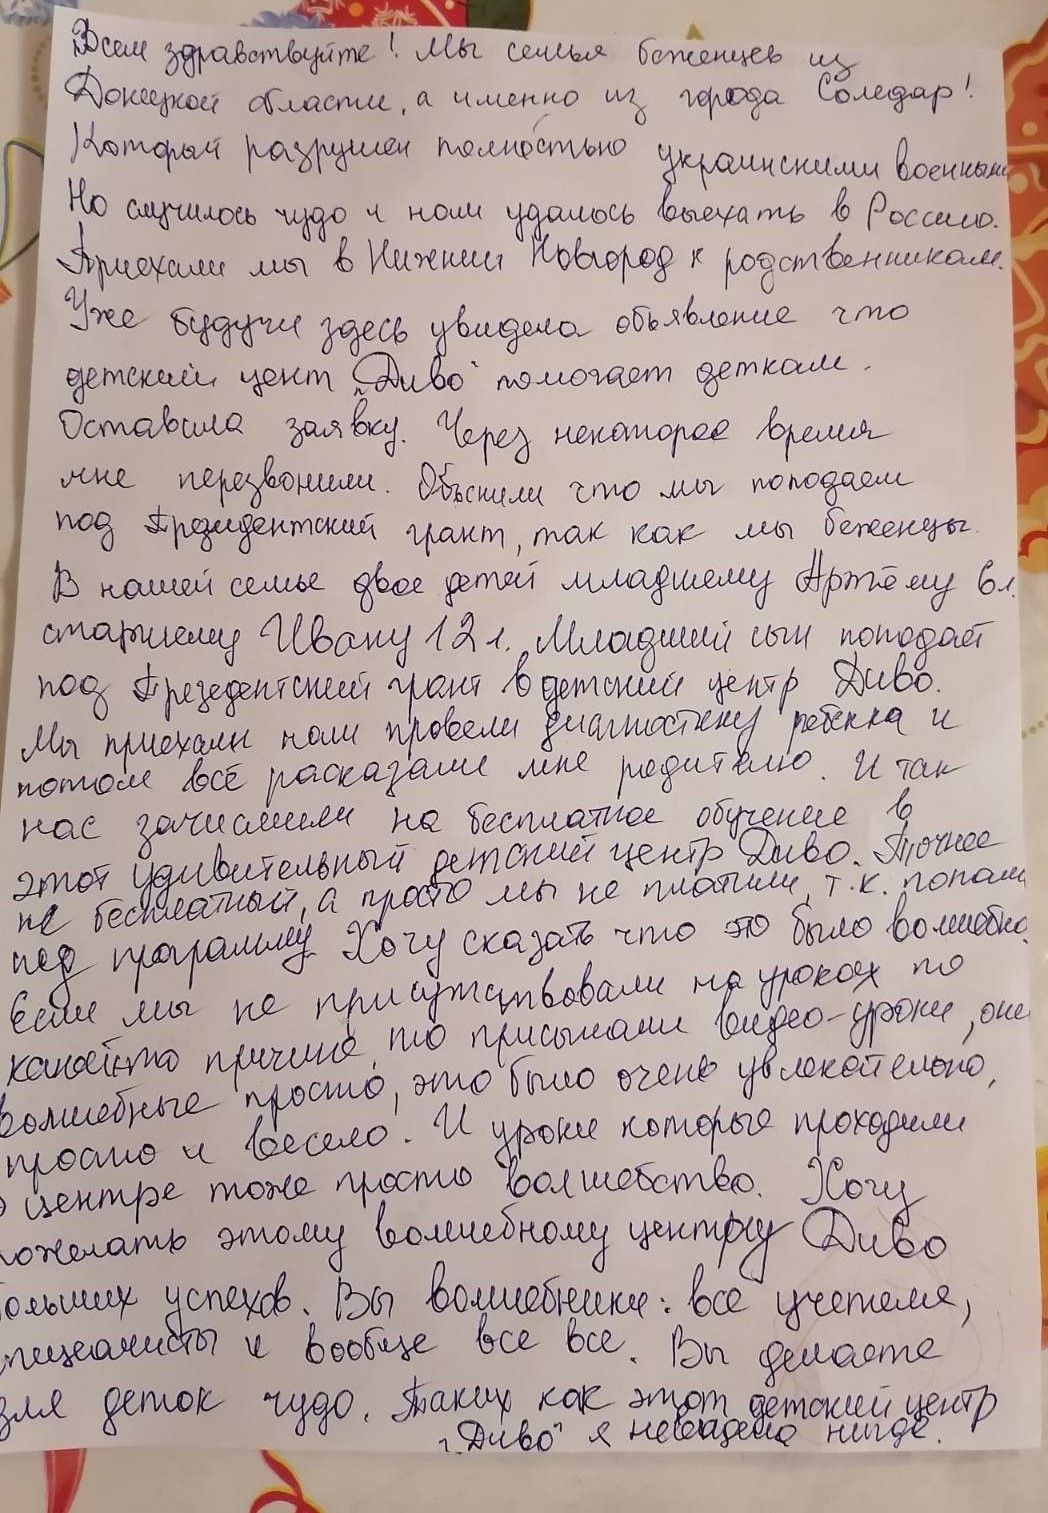 Всем здравствуйте! Мы семья беженцев из
Донецкой области, а именно из города Соледар!
Который разрушен полностью украинскими военными
Но случилось чудо и нам удалось выехать в Россию.
Приехали мы в Нижний Новгород к родственникам.
Уже будучи здесь увидела объявление что
детский цент „Диво" помогает деткам.
Оставила заявку. Через некоторое время
мне перезвонили. Объснили что мы поподаем
под Президентский грант, так как мы беженцы.
В нашей семье двое детей младшему Артёму 6 л.
старшему Ивану 12 л. Младший сын поподает
под Презедентский грант в детский центр Диво.
Мы приехали нам провели диагностику ребёнка и
потом всё расказали мне родителю. И так
нас зачислили на бесплатное обучение в
этот удивительный детский центр Диво. Точнее
не бесплатный, а просто мы не платили, т.к. попали
под программу. Хочу сказать что это было волшебно.
Если мы не присутствовали на уроках по
какойто причине, то присылали видео-уроки, они
волшебные просто, это было очень увлекательно,
просто и весело. И уроки которые проходили
в центре тоже просто волшебство. Хочу
пожелать этому волшебному центру Диво
больших успехов. Вы волшебники: все учителя,
специалисты и вообще все все. Вы делаете
для деток чудо. Таких как этот детский центр
„Диво" я невидела нигде.